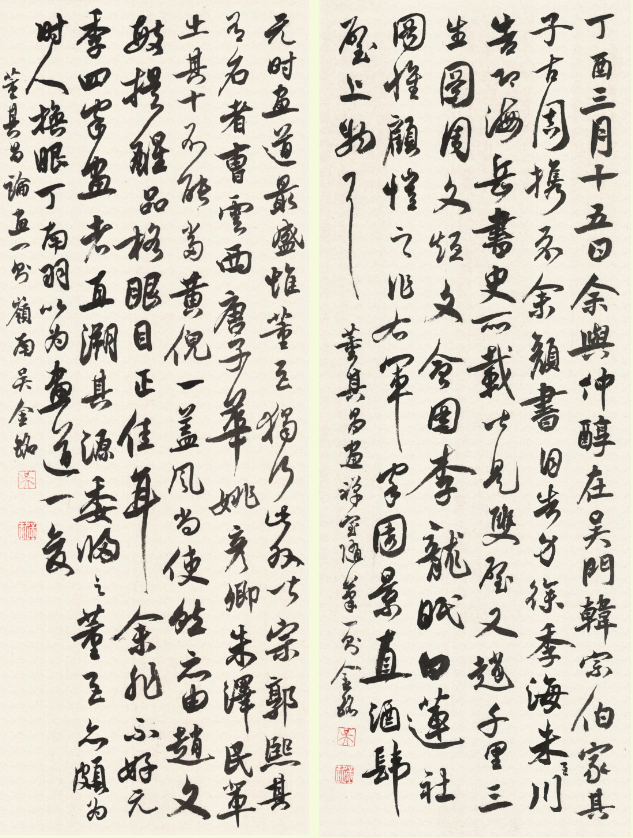 丁酉三月十五日余與仲醇在吳門韓宗伯家其
子古周攜示余顏書自告身徐季海朱巨川
告即海岳書史所載皆是雙璧又趙千里三
生圖周文矩文會圖李龍眠白蓮社
圖惟顧愷之作右軍家園景直酒肆
壁上物耳
董其昌畫禪室隨筆一則金銘
元時畫道最盛惟董巨獨行此外皆宗郭熙其
有名者曹雲西唐子華姚彥卿朱澤民輩
出其十不能當黃倪一蓋風尚使然亦由趙文
敏提醒品格眼目正佳耳余非不好元
季四家畫者直溯其源委歸之董巨亦頗為
时人換眼丁南羽以為畫道一變
董其昌論畫一則嶺南吳金銘